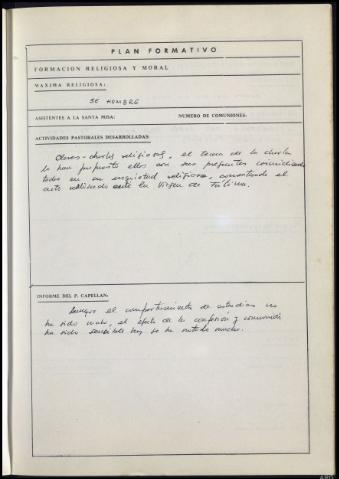 PLAN FORMATIVO
FORMACION RELIGIOSA Y MORAL
MAXIMA RELIGIOSA:
SE HOMBRE
ASISTENTES A LA SANTA MISA: NUMERO DE COMUNIONES:
ACTIVIDADES PASTORALES DESARROLLADAS:
Clases-charlas religiosas, el tema de la charla
lo han propuesto ellos con sus preguntas coincidiendo
todos en su inquietud religiosa, comentando el
acto celebrado ante la Virgen de Fátima.
INFORME DEL P. CAPELLAN:
Aunque el comportamiento de estudios no
ha sido malo, el efecto de la confesión y comunión
ha sido sensible hoy se ha notado mucho.